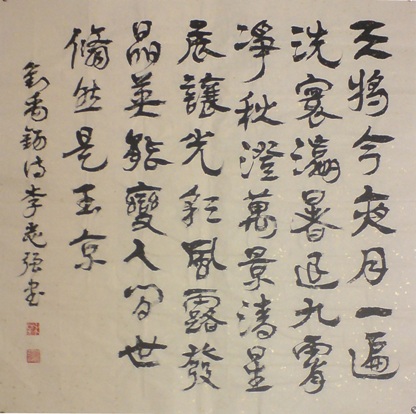 天將今夜月一遍
洗寰瀛暑退九霄
淨秋澄萬景清星
辰讓光彩風露發
晶英能變人間世
翛然是玉京
劉禹錫詩李志强書